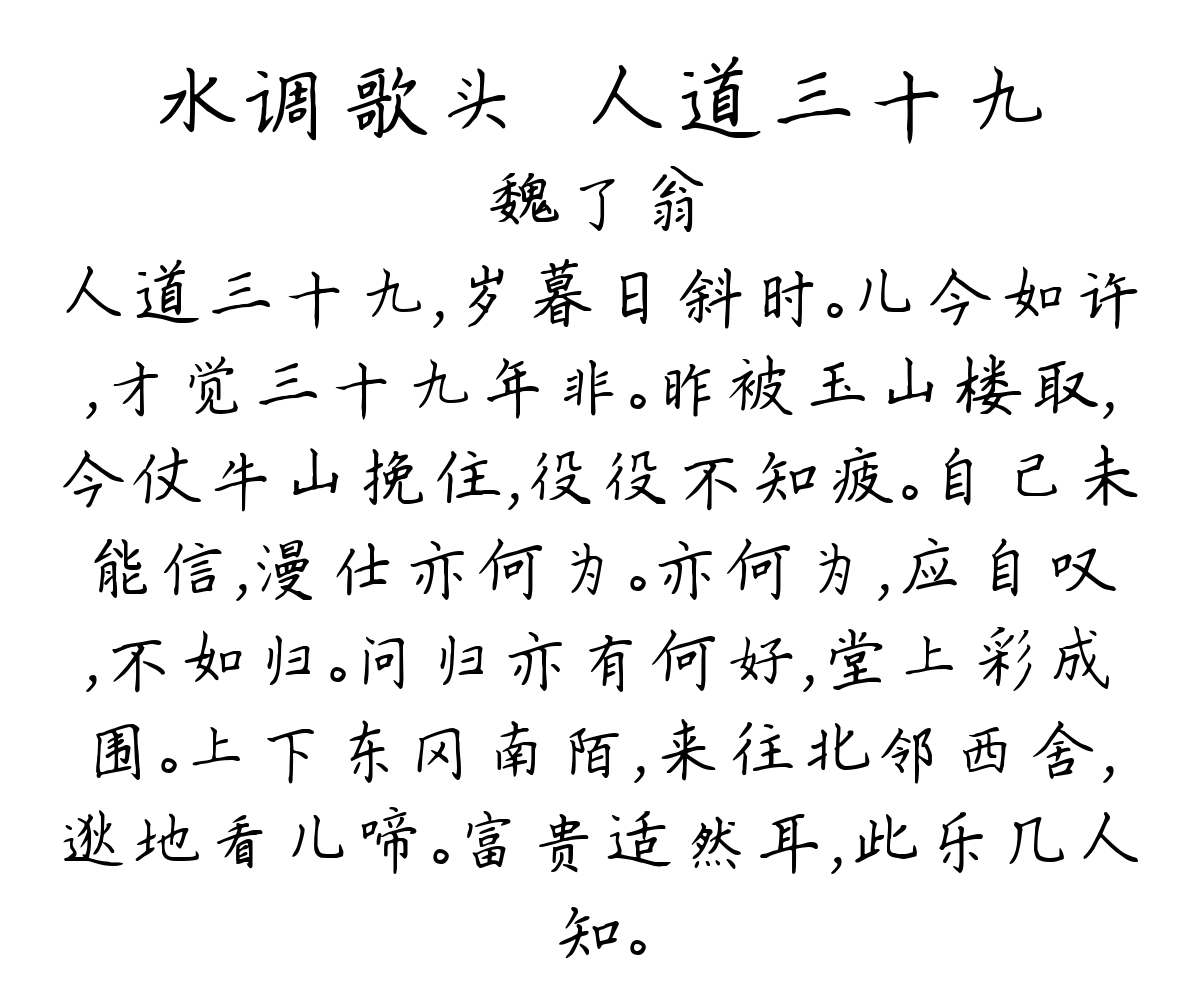 水调歌头 人道三十九
魏了翁
人道三十九,岁暮日斜时。儿今如许
,才觉三十九年非。昨被玉山楼取,
今仗牛山挽住,役役不知疲。自己未
能信,漫仕亦何为。亦何为,应自叹
,不如归。问归亦有何好,堂上彩成
围。上下东冈南陌,来往北邻西舍,
逖地看儿啼。富贵适然耳,此乐几人
知。